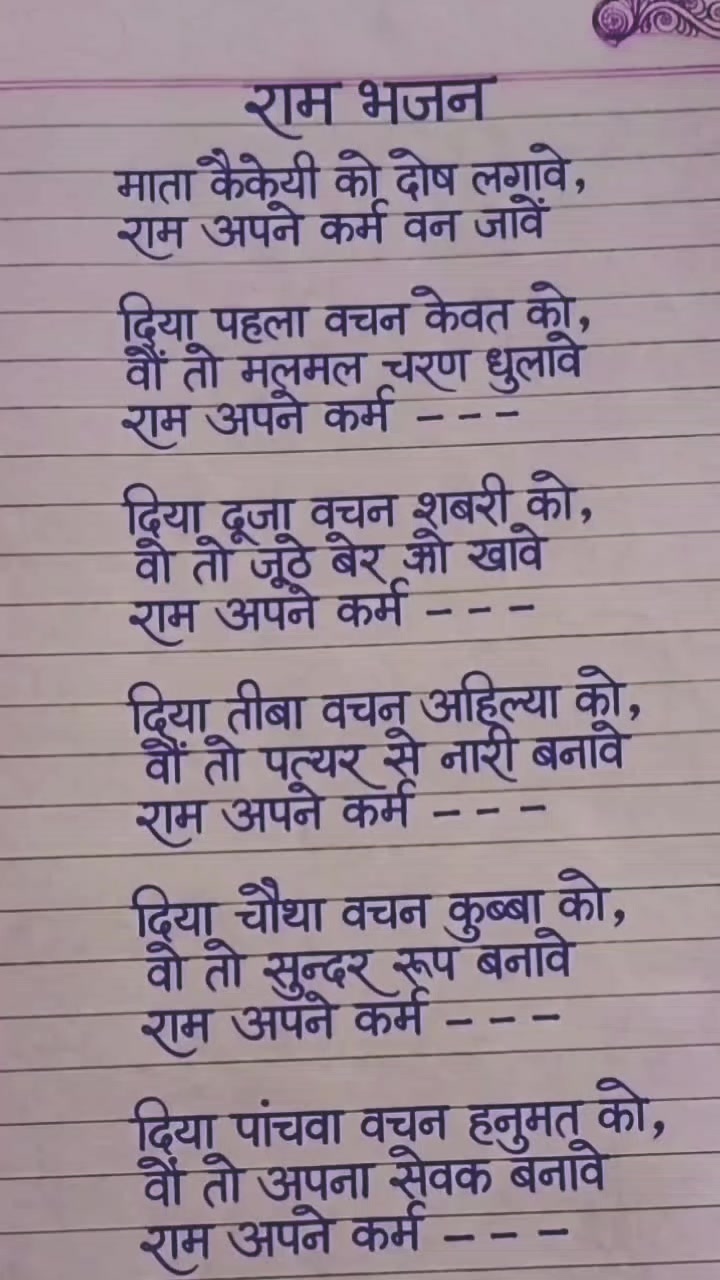 राम भजन
माता कैकेयी को दोष लगावे,
राम अपने कर्म वन जावें
दिया पहला वचन केवत को,
वों तो मलमल चरण धुलावे
राम अपने कर्म ---
दिया दूजा वचन शबरी को,
वो तो जूठे बेर को खावे
राम अपने कर्म ---
दिया तीबा वचन अहिल्या को,
वों तो पत्यर से नारी बनावे
राम अपने कर्म ---
दिया चौथा वचन कुब्बा को,
वो तो सुन्दर रूप बनावे
राम अपने कर्म ---
दिया पांचवा वचन हनुमत को,
वों तो अपना सेवक बनावे
राम अपने कर्म ---